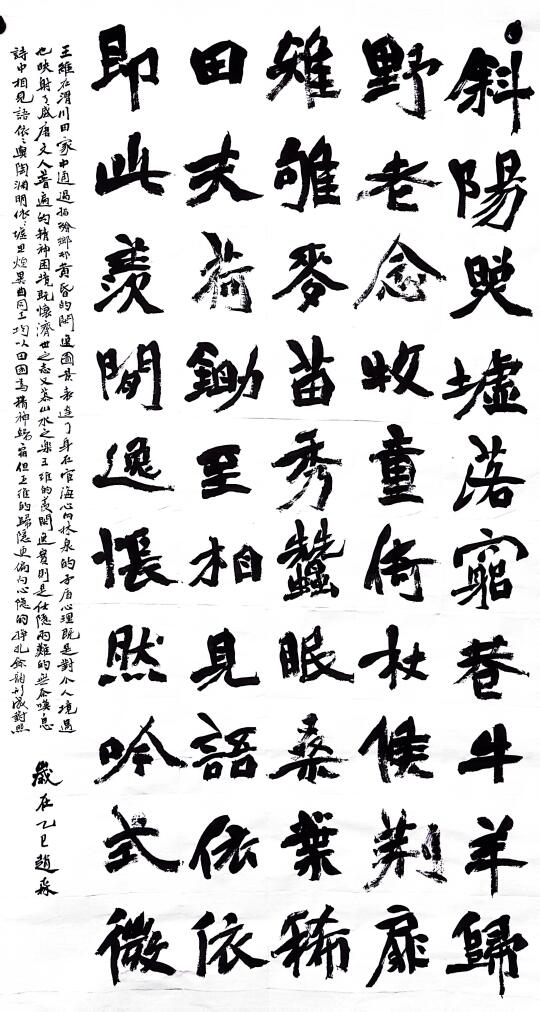 斜陽照墟落窮巷牛羊歸
野老念牧童倚杖候荆扉
雉雊麥苗秀蠶眠桑葉稀
田夫荷鋤至相見語依依
即此羨閒逸悵然吟式微
王維在渭川田家中通過描繪鄉村黄昏的閒逸圖景表達了身在官海心向林泉的矛盾心理既是對个人境遇
也映射了盛唐文人普遍的精神困境既懷濟世之志又慕山水之樂王維的羨閒逸實則是仕隱兩難的無奈嘆息
詩中相見語依依與陶淵明依依墟里煙異曲同工均以田園為精神歸宿但王維的歸隱更偏向心隱的掙扎餘韵形成對照
歲在乙巳趙森